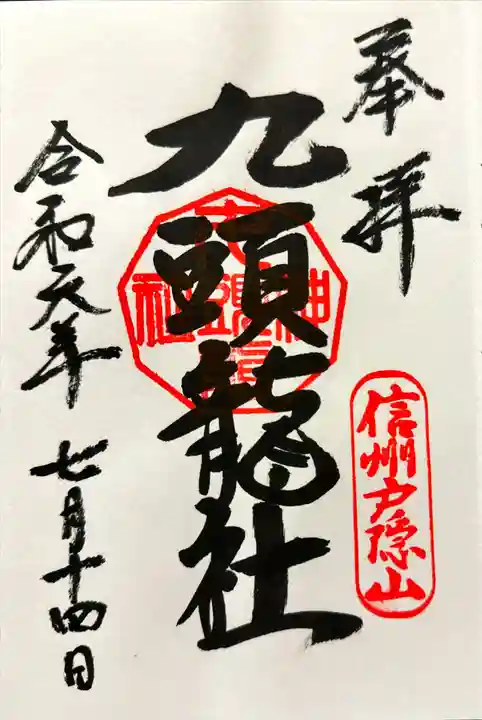 奉拝
信州戸隠山
九頭龍社
令和元年 七月十四日